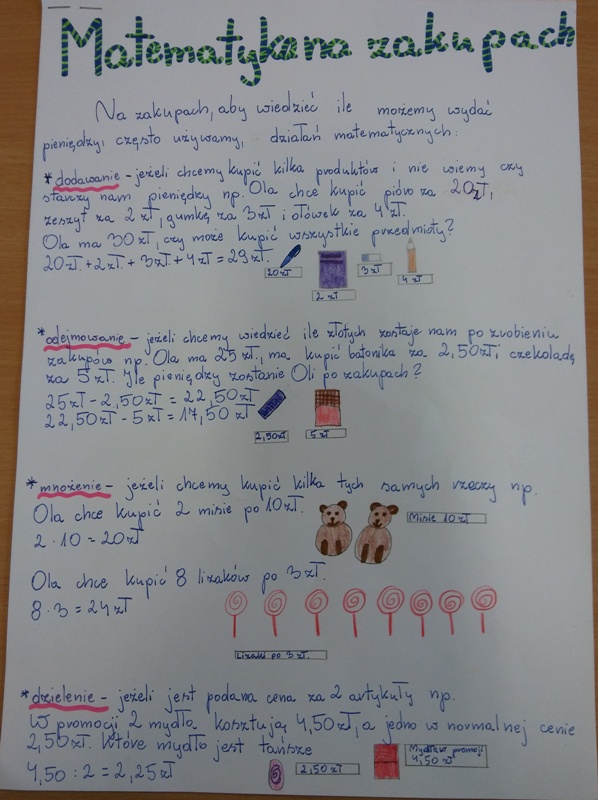 Matematyka na zakupach
Na zakupach, aby wiedzieć ile możemy wydać
pieniędzy, często używamy działań matematycznych:
* dodawanie - jeżeli chcemy kupić kilka produktów i nie wiemy czy
starczy nam pieniędzy np. Ola chce kupić pióro za 20zł,
zeszyt za 2zł, gumkę za 3zł i ołówek za 4zł.
Ola ma 30zł, czy może kupić wszystkie przedmioty?
20zł + 2zł + 3zł + 4zł = 29zł.
20zł
2 zł
3zł
4zł
* odejmowanie - jeżeli chcemy wiedzieć ile złotych zostaje nam po zrobieniu
zakupów np. Ola ma 25zł, ma kupić batonika za 2,50zł i czekoladę
za 5zł. Ile pieniędzy zostanie Oli po zakupach?
25zł - 2,50zł = 22,50zł
22,50zł - 5zł = 17,50zł
2,50zł
5zł
* mnożenie - jeżeli chcemy kupić kilka tych samych rzeczy np.
Ola chce kupić 2 misie po 10zł.
2 · 10 = 20zł
Misie 10zł
Ola chce kupić 8 lizaków po 3zł.
8 · 3 = 24zł
Lizaki po 3zł
* dzielenie - jeżeli jest podana cena za 2 artykuły np.
W promocji 2 mydła kosztują 4,50zł, a jedno w normalnej cenie
2,50zł. Które mydło jest tańsze
4,50 : 2 = 2,25zł
2,50zł
Mydła w promocji
4,50zł